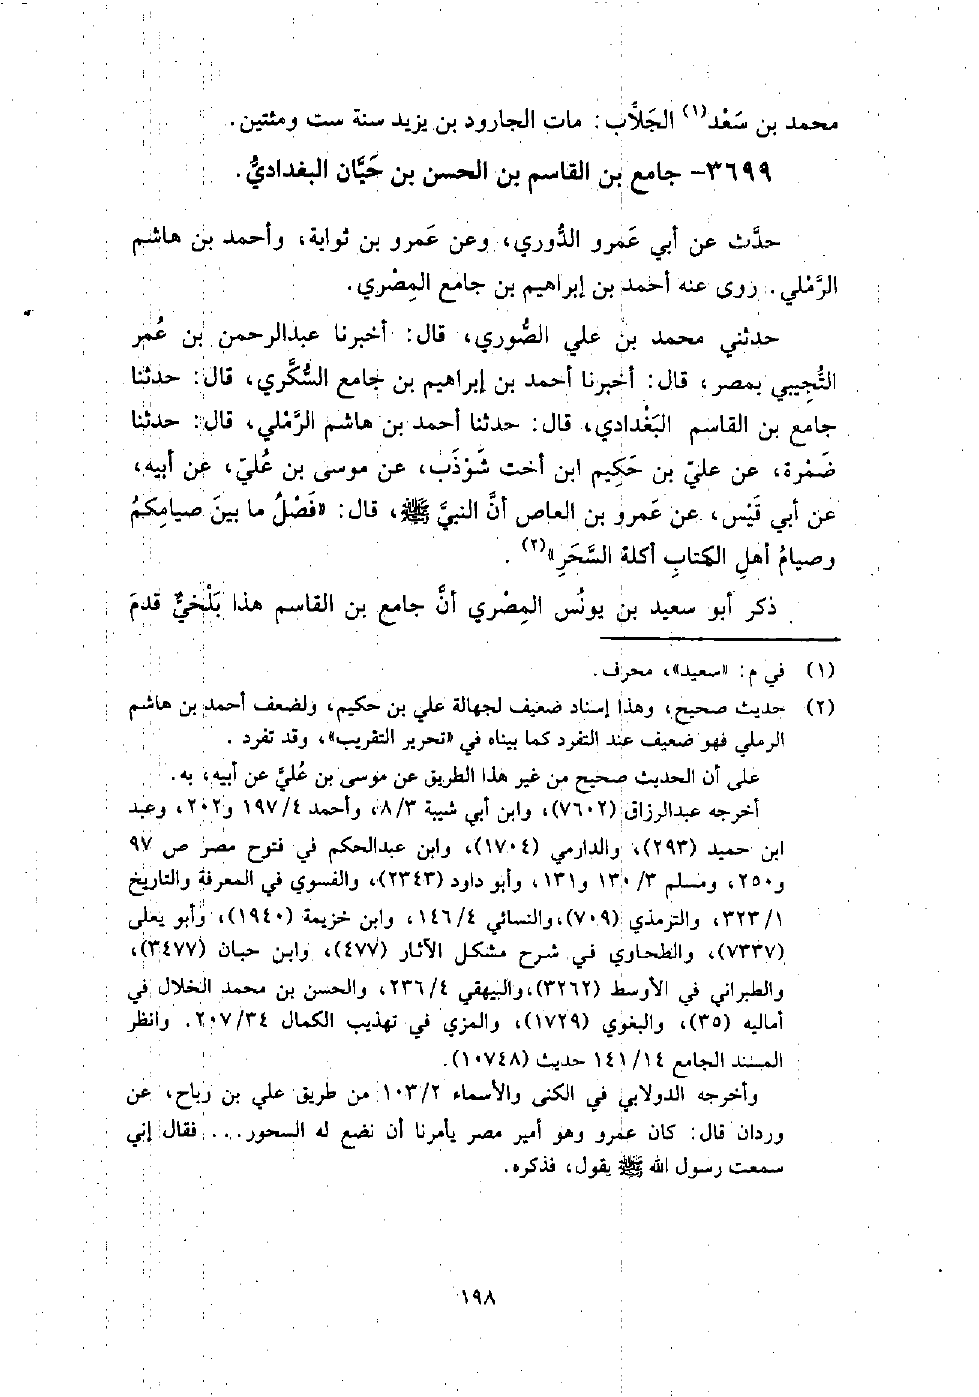 محمد بن سَعْد(١) الجَلَّاب: مات الجارود بن يزيد سنة ست ومئتين.
٣٦٩٩- جامع بن القاسم بن الحسن بن حَيَّان البغداديُّ.
حدَّث عن أبي عَمرو الدُّوري، وعن عَمرو بن ثوابة، وأحمد بن هاشم
الرَّمْلي. روى عنه أحمد بن إبراهيم بن جامع المِصْري.
حدثني محمد بن علي الصُّوري، قال: أخبرنا عبدالرحمن بن عُمر
التُّجِيبي بمصر، قال: أخبرنا أحمد بن إبراهيم بن جامع السُّكَّري، قال: حدثنا
جامع بن القاسم البَغْدادي، قال: حدثنا أحمد بن هاشم الرَّمْلي، قال: حدثنا
ضَمْرة، عن عليّ بن حَكِيم ابن أخت شَوْذَب، عن موسى بن عُليّ، عن أبيه،
عن أبي قَيْس، عن عَمرو بن العاص أنَّ النبيَّ ﷺ، قال: «فَضْلُ ما بينَ صيامِكمُ
وصيامُ أهلِ الكتابِ أكلة السَّحَرِ»(٢).
ذكر أبو سعيد بن يونُس المِصْري أنَّ جامع بن القاسم هذا بَلْخيٌّ قدمَ
(١) في م: «سعيد»، محرف.
(٢) حديث صحيح، وهذا إسناد ضعيف لجهالة علي بن حكيم، ولضعف أحمد بن هاشم
الرملي فهو ضعيف عند التفرد كما بيناه في «تحرير التقريب»، وقد تفرد.
على أن الحديث صحيح من غير هذا الطريق عن موسى بن عُليّ عن أبيه، به.
أخرجه عبدالرزاق (٧٦٠٢)، وابن أبي شيبة ٨/٣، وأحمد ١٩٧/٤ و٢٠٢، وعبد
ابن حميد (٢٩٣)، والدارمي (١٧٠٤)، وابن عبدالحكم في فتوح مصر ص ٩٧
و٢٥٠، ومسلم ١٣٠/٣ و١٣١، وأبو داود (٢٣٤٣)، والفسوي في المعرفة والتاريخ
٣٢٣/١، والترمذي (٧٠٩)، والنسائي ١٤٦/٤، وابن خزيمة (١٩٤٠)، وأبو يعلى
(٧٣٣٧)، والطحاوي في شرح مشكل الآثار (٤٧٧)، وابن حبان (٣٤٧٧)،
والطبراني في الأوسط (٣٢٦٢)، والبيهقي ٢٣٦/٤، والحسن بن محمد الخلال في
أماليه (٣٥)، والبغوي (١٧٢٩)، والمزي في تهذيب الكمال ٢٠٧/٣٤. وانظر
المسند الجامع ١٤١/١٤ حديث (١٠٧٤٨).
وأخرجه الدولابي في الكنى والأسماء ١٠٣/٢ من طريق علي بن رباح، عن
وردان قال: كان عمرو وهو أمير مصر يأمرنا أن نضع له السحور... فقال إني
سمعت رسول الله ﷺ يقول، فذكره.
١٩٨